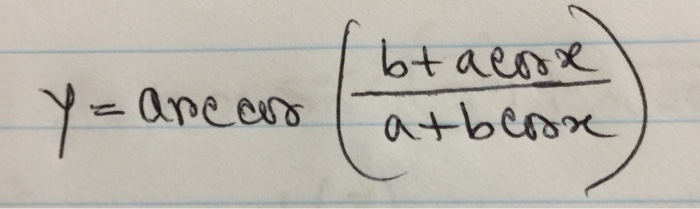 y = arc cos ( (b + a cos x) / (a + b cos x) )